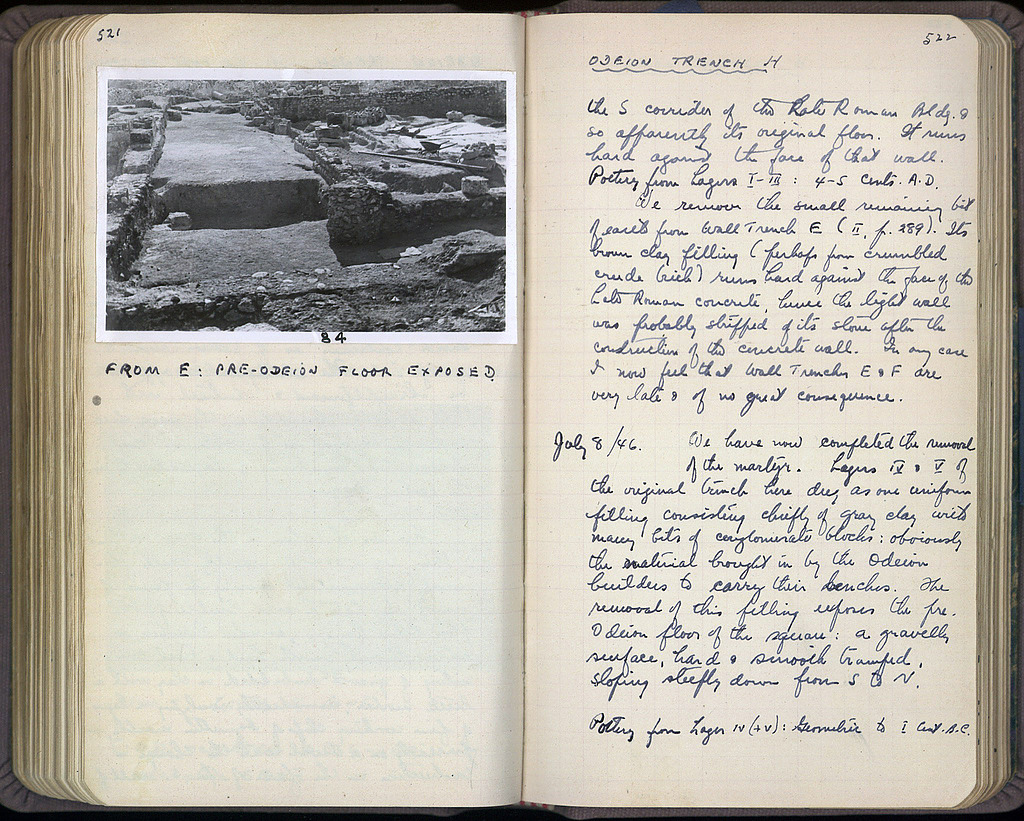 521
84
FROM E: PRE-ODEION FLOOR EXPOSED.
522
ODEION TRENCH H
the S corridor of the Late Roman Bldg. &
so apparently its original floor. It runs
hard against the face of that wall.
Pottery from Layers I-III: 4-5 Cents. A.D.
We remove the small remaining bit
of earth from Wall Trench E (II, p. 289). Its
brown clay filling (perhaps from crumbled
crude brick) runs hard against the face of the
Late Roman concrete, hence the light wall
was probably stripped of its stone after the
construction of the concrete wall. In any case
I now feel that Wall Trenches E & F are
very late & of no great consequence.
July 8/46. We have now completed the removal
of the martyr. Layers IV & V of
the original trench here dug as one uniform
filling consisting chiefly of gray clay with
many bits of conglomerate blocks: obviously
the material brought in by the Odeion
builders to carry their benches. The
removal of this filling exposes the pre-
Odeion floor of the square: a gravelly
surface, hard & smooth tramped,
sloping steeply down from S to N.
Pottery from Layer IV (+V): Geometric to I Cent. B.C.